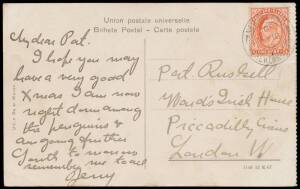 Union postale universelle
Bilhete Postal - Carte postale
My dear Pat.
I hope you may
have a very good
Xmas I am now
right down among
the penguins &
am going further
South to morrow
remember me to all
Jerry
Pat. Russell
Wards Irish House
Piccadilly Circus
London W